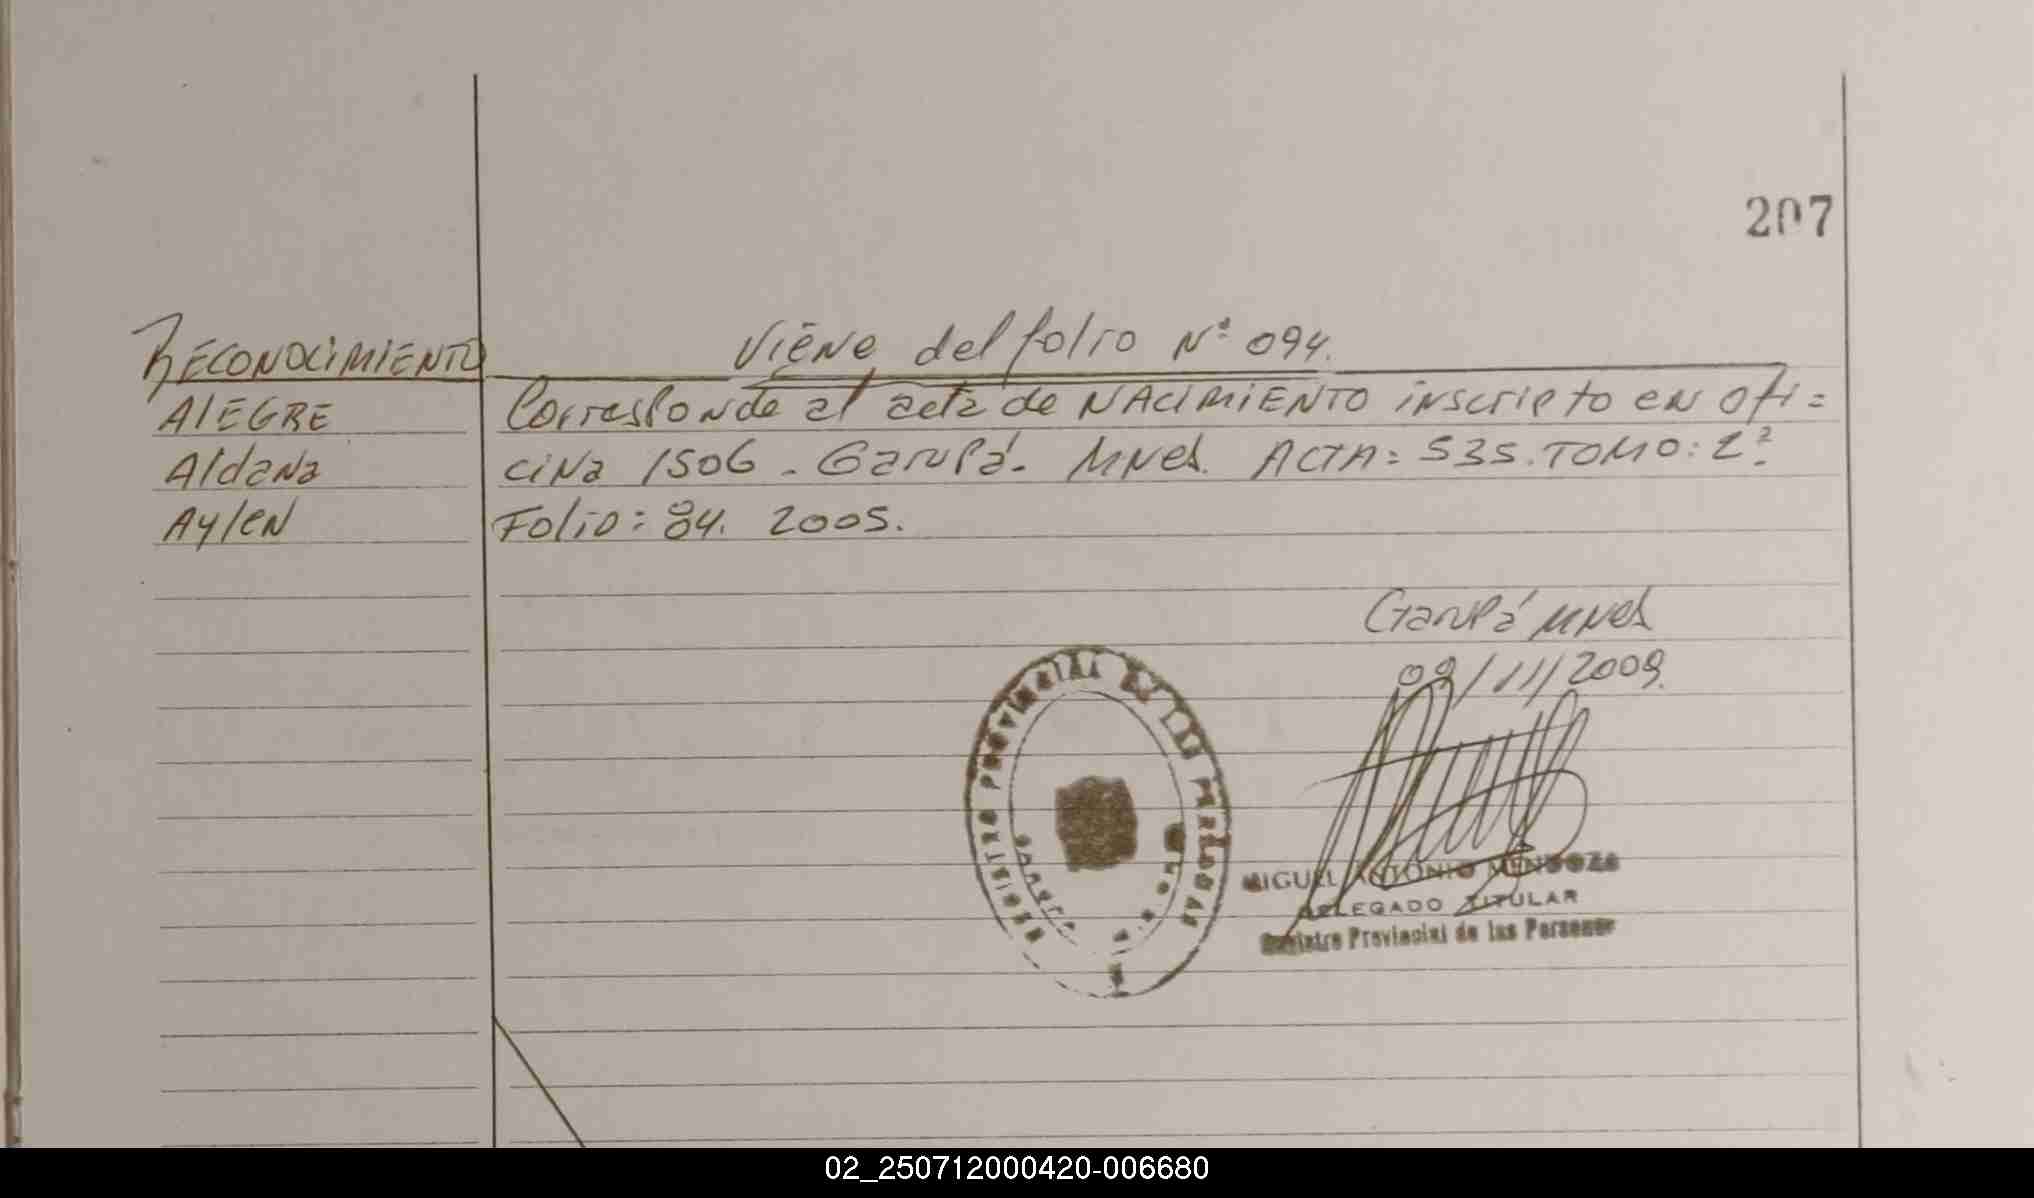 207
RECONOCIMIENTO
Viene del folio Nº 094.
AlEGRE
Corresponde al acta de NACIMIENTO inscripto en ofi=
Aldana
cina 1506 - Garupá - Mnes. ACTA: 535. TOMO: 2º
Aylen
Folio: 84. 2005.
Garupá Mnes
09/11/2009.
REGISTRO PROVINCIAL DE LAS PERSONAS
MIGUEL ANTONIO MENDOZA
DELEGADO TITULAR
Registro Provincial de las Personas
02_250712000420-006680